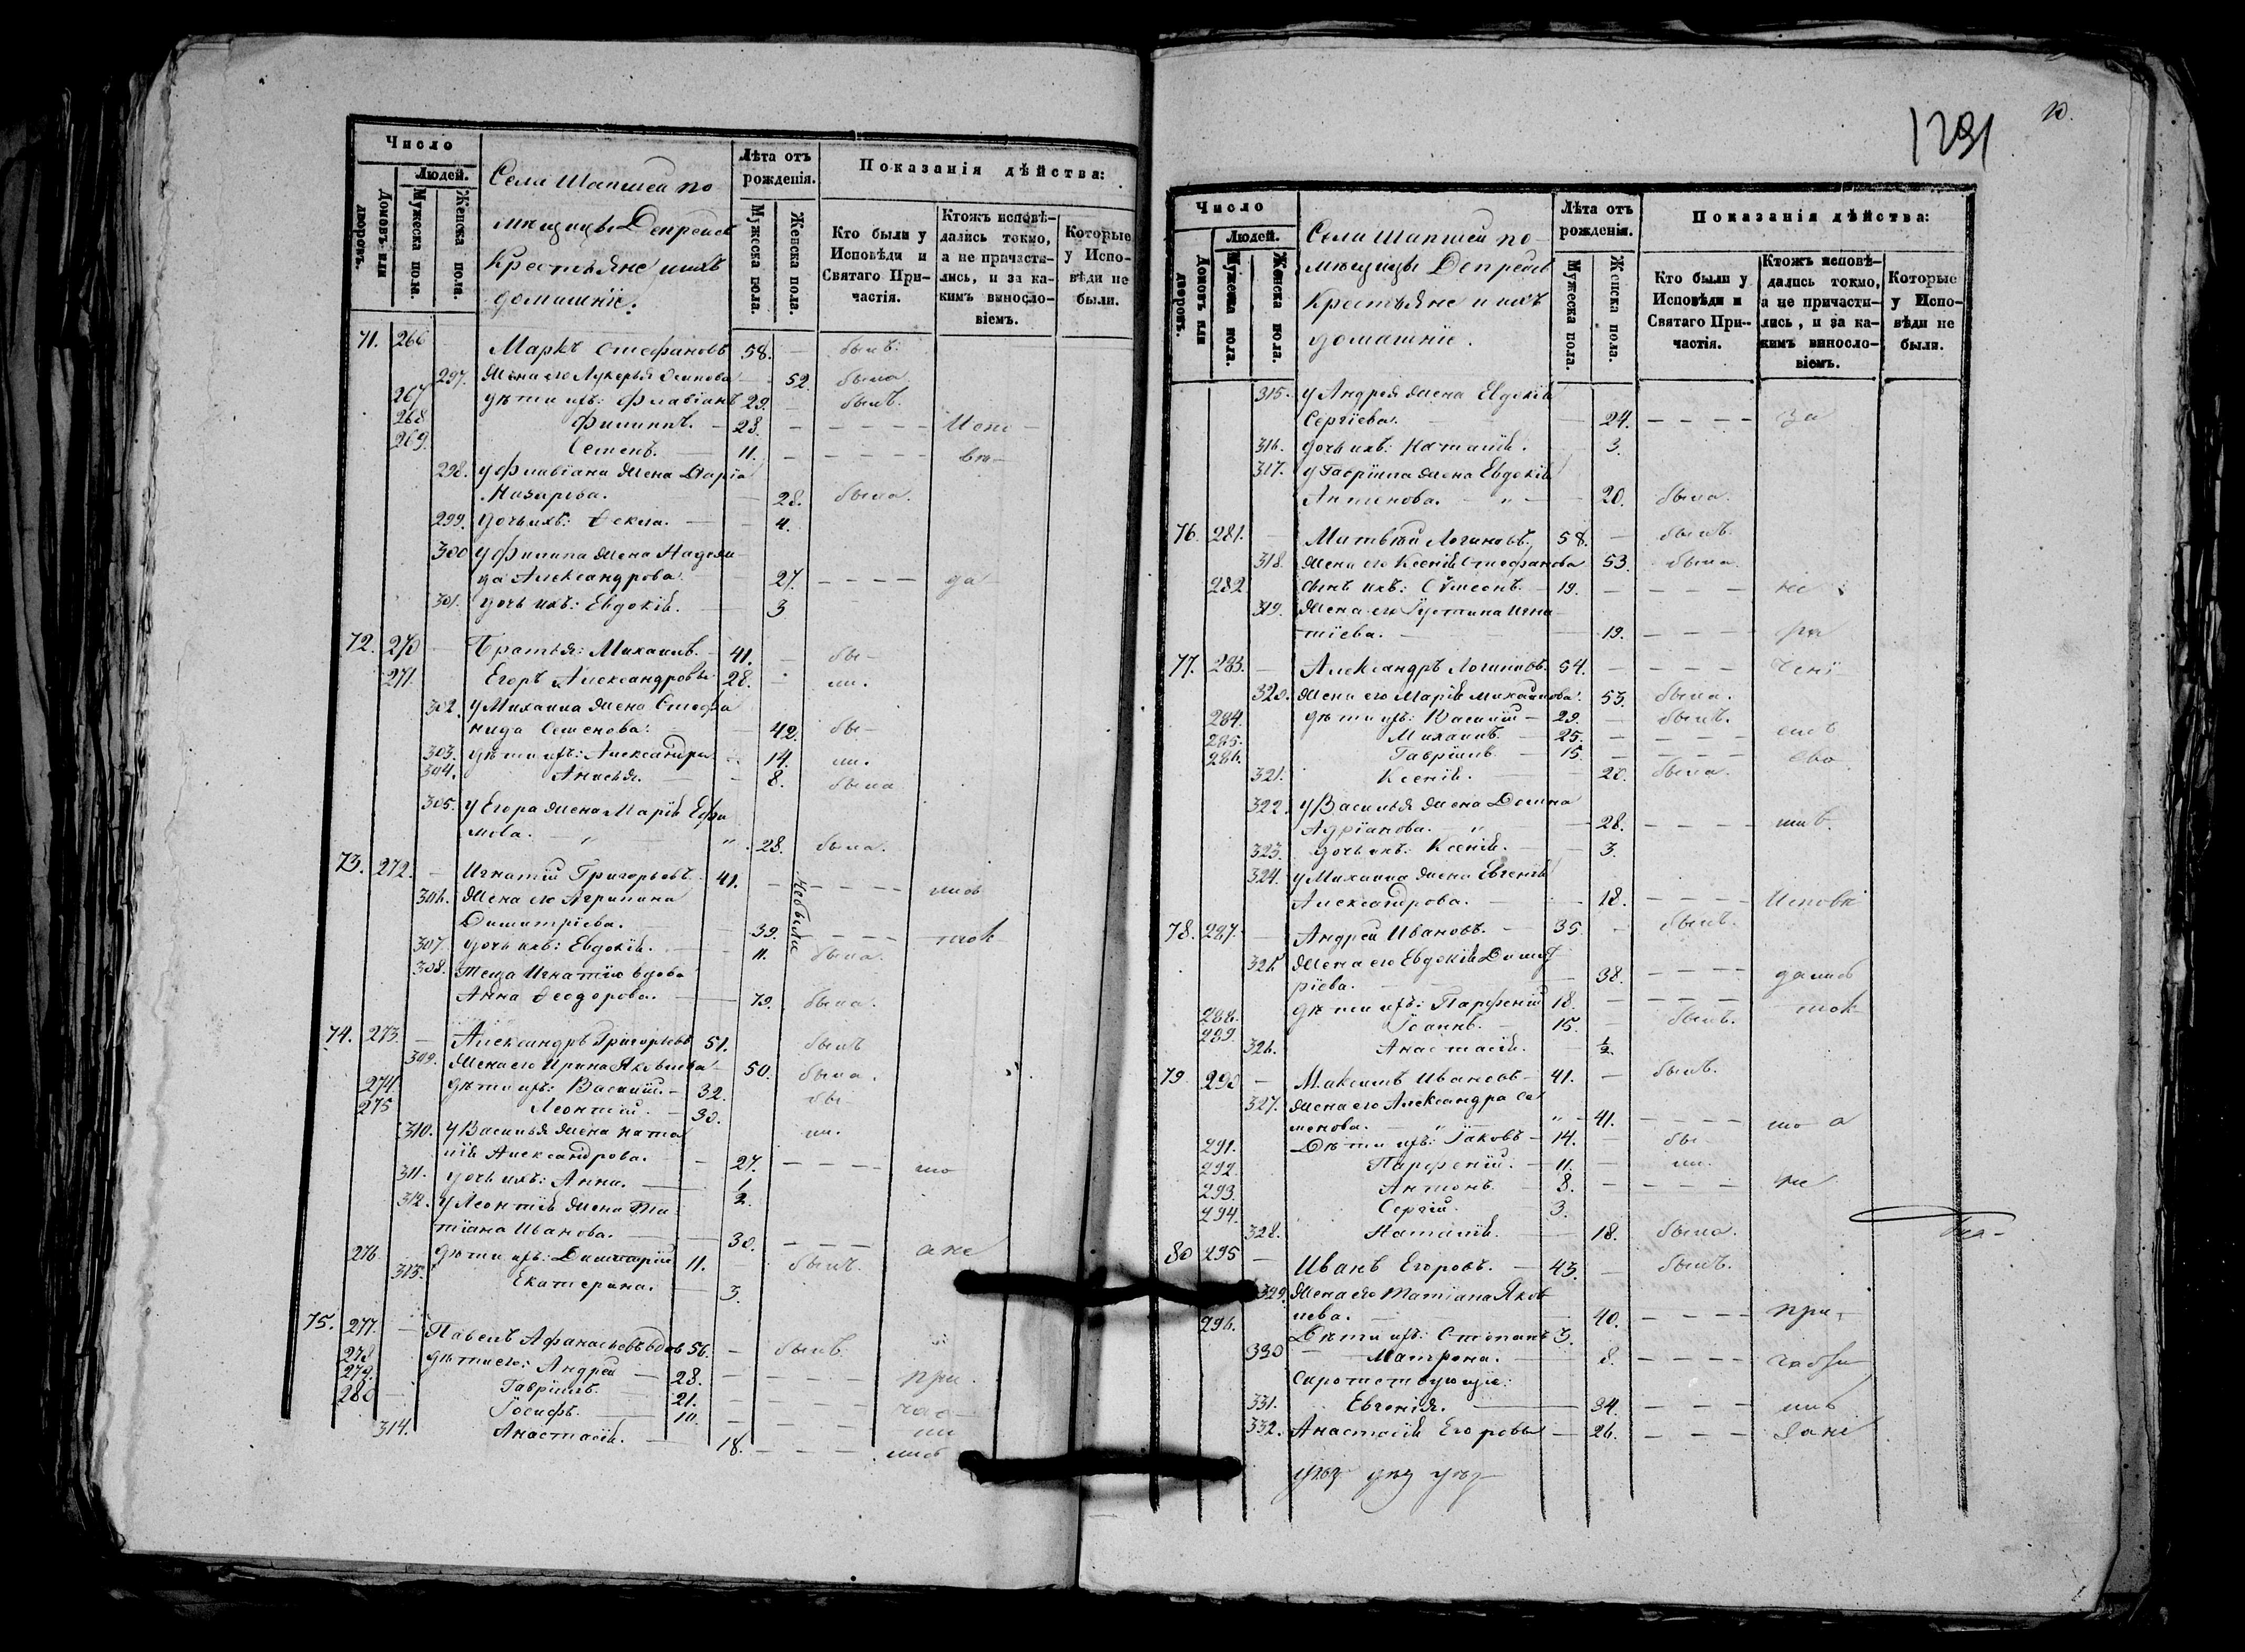 Число
Людей.
Домовъ или дворовъ.
Мужеска пола.
Женска пола.
Села Шапшеи по
мѣщицы Депрейсъ
Крестьяне и ихъ
домашніе.
Лѣта отъ рожденія.
Мужеска пола.
Женска пола.
Показанія дѣйства:
Кто были у Исповѣди и Святаго Причастія.
Ктожъ исповѣдались токмо, а не причастились, и за какимъ винословіемъ.
Которые у Исповѣди не были.
71. 266 — Маркъ Стефановъ 58. — былъ.
297. Жена его Лукерья Осипова 52. была
267 дѣти ихъ: Флавіанъ 29. — былъ.
268 Филиппъ. — 28. — — — — Испо
269. Семенъ. 11. — — — — вѣ—
298. у Флавіана жена Дарія
Назарова. 28. была.
299. дочь ихъ: Ѳекла. — 4.
300 у Филипа жена Надеж
да Александрова. 27. — — — — да
301. дочь ихъ: Евдокія. 3
72. 270 — Братья: Михаилъ. — 41. — бы—
271 Егоръ Александровы 28. — ли.
302. у Михаила жена Стефа
нида Семенова. 42. бы—
303. дѣти ихъ: Александра — 14. ли.
304. Анисья. — 8. была
305. у Егора жена Марія Ефи
мова. „ „ 28. была.
73. 272. — Игнатій Григорьевъ. 41. — — — — лись
306. Жена его Агрипина
Димитріева. 39. — — — ток
307. дочь ихъ: Евдокія. 11. была.
308. Теща Игнатію вдова
Анна Ѳеодорова. — 79. была.
не были
74. 273. — Александръ Григорьевъ 51. былъ
309. Жена его Ирина Яковлева 50. была.
274 дѣти ихъ: Василій. — 32. бы—
275 Леонтій. — 30. ли.
310. у Василья жена Ната
лія Александрова. — 27. — — — мо
311. дочь ихъ: Анна. — 1/2
312. у Леонтія жена Та
тіана Иванова. — 30. — — — а не
276 дѣти ихъ: Димитрій 11. — былъ.
313. Екатерина. — 3.
75. 277. — Павелъ Афанасьевъ вдов 56. — былъ
278 дѣти его: Андрей — 28. — — — — при
279. Гавріилъ. 21. — — — — час
280 Іосифъ. 10. — — — — ти
314. Анастасія. — 18. — — — лись
1291
20.
Число
Людей.
Домовъ или дворовъ.
Мужеска пола.
Женска пола.
Села Шапшеи по
мѣщицы Депрейсъ
Крестьяне и ихъ
домашніе.
Лѣта отъ рожденія.
Мужеска пола.
Женска пола.
Показанія дѣйства:
Кто были у Исповѣди и Святаго Причастія.
Ктожъ исповѣдались токмо, а не причастились, и за какимъ винословіемъ.
Которые у Исповѣди не были.
315. у Андрея жена Евдокія
Сергіева. — 24. — — — — за
316. дочь ихъ: Наталія. 3.
317. у Гавріила жена Евдокія
Антонова. — „ — 20. была.
76. 281. — Матвѣй Логиновъ. 58. — былъ.
318. жена его Ксенія Стефанова 53. была.
282 сынъ ихъ: Сѷмеонъ. — 19. — — — — не
319. Жена его Іустина Игна
тіева. — 19. — — — ра
77. 283. — Александръ Логиновъ. 54. — — — — чені
320. Жена его Марія Михайлова. 53. была.
284. дѣти ихъ: Василій — 29. — былъ.
285. Михаилъ. — 25. — — — — емъ
286. Гавріилъ. — 15. — — — — сво
321. Ксенія. — 20. была.
322. у Василья жена Домна
Адріанова. „ — 28. — — — — имъ.
323. дочь ихъ: Ксенія. — 3.
324. у Михаила жена Евгенія
Александрова. — 18. — — — — Исповѣ
78. 287. — Андрей Ивановъ. — 35. — былъ.
325. Жена его Евдокія Димит
ріева. — 38. — — — — дались
288. дѣти ихъ: Парфеній 18. — — — — ток
289. Іоаннъ. — 15. — былъ.
326. Анастасія. 1/2
79 290 — Максимъ Ивановъ — 41. — былъ.
327. Жена его Александра Се
менова. „ „ 41. — — — — мо а
291. Дѣти ихъ: Іаковъ — 14. — бы—
292. Парфеній. — 11. — ли.
293. Антонъ. — 8. — — — — не
294. Сергій. 3.
328. Наталія. 18. была.
80 295 — Иванъ Егоровъ. — 43. — былъ.
329. Жена его Татіана Яков
лева. 40. — — — — при—
296. Дѣти ихъ: Степанъ 3.
330 — Матрона. 8. — — — —
Сиротствующіе:
331. Евгенія. — 34. — — —
332. Анастасія Егоровы — 26. — — — за не